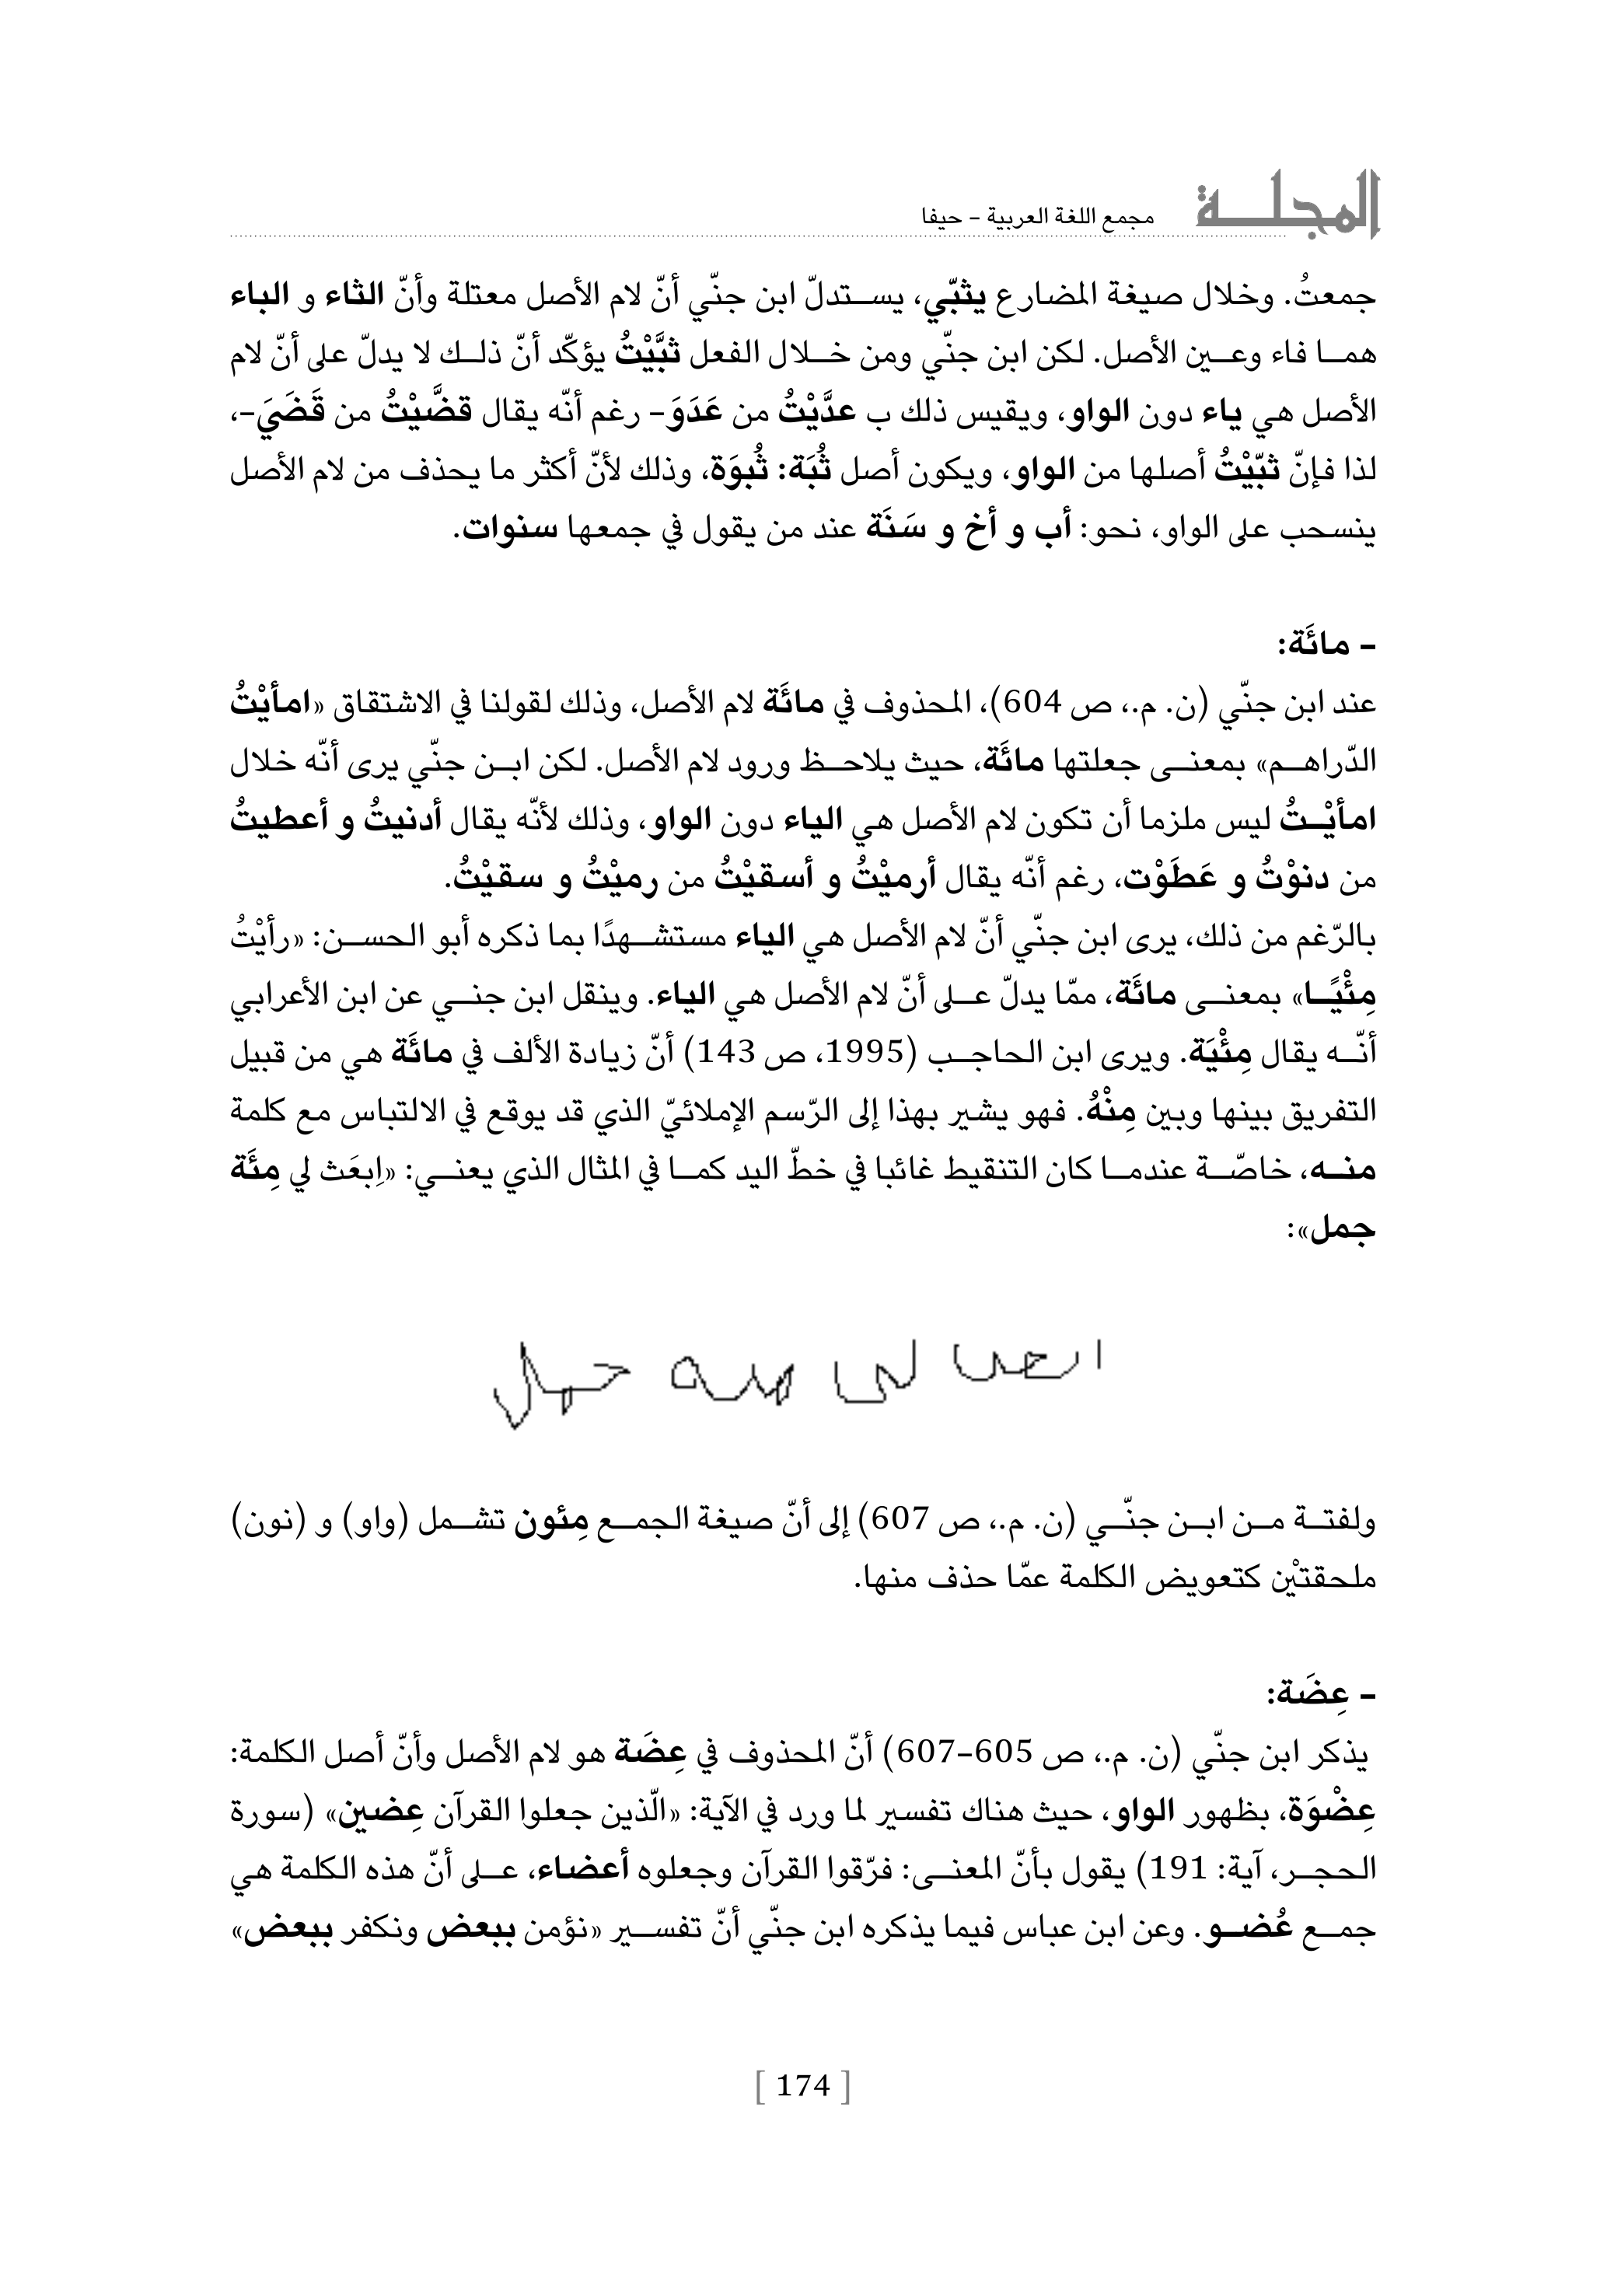 المجلة
مجمع اللغة العربية – حيفا
جمعتُ. وخلال صيغة المضارع يثبّي، يستدلّ ابن جنّي أنّ لام الأصل معتلة وأنّ الثاء و الباء
هما فاء وعين الأصل. لكن ابن جنّي ومن خلال الفعل ثبَّيْتُ يؤكّد أنّ ذلك لا يدلّ على أنّ لام
الأصل هي ياء دون الواو، ويقيس ذلك ب عدَّيْتُ من عَدَوَ– رغم أنّه يقال قضَّيْتُ من قَضَيَ–،
لذا فإنّ ثبّيْتُ أصلها من الواو، ويكون أصل ثُبَة: ثُبوَة، وذلك لأنّ أكثر ما يحذف من لام الأصل
ينسحب على الواو، نحو: أب و أخ و سَنَة عند من يقول في جمعها سنوات.
– مائَة:
عند ابن جنّي (ن. م.، ص 604)، المحذوف في مائَة لام الأصل، وذلك لقولنا في الاشتقاق «امأيْتُ
الدّراهم» بمعنى جعلتها مائَة، حيث يلاحظ ورود لام الأصل. لكن ابن جنّي يرى أنّه خلال
امأيْتُ ليس ملزما أن تكون لام الأصل هي الياء دون الواو، وذلك لأنّه يقال أدنيتُ و أعطيتُ
من دنوْتُ و عَطَوْت، رغم أنّه يقال أرميْتُ و أسقيْتُ من رميْتُ و سقيْتُ.
بالرّغم من ذلك، يرى ابن جنّي أنّ لام الأصل هي الياء مستشهدًا بما ذكره أبو الحسن: «رأيْتُ
مِئْيًا» بمعنى مائَة، ممّا يدلّ على أنّ لام الأصل هي الياء. وينقل ابن جني عن ابن الأعرابي
أنّه يقال مِئْيَة. ويرى ابن الحاجب (1995، ص 143) أنّ زيادة الألف في مائَة هي من قبيل
التفريق بينها وبين مِنْهُ. فهو يشير بهذا إلى الرّسم الإملائيّ الذي قد يوقع في الالتباس مع كلمة
منه، خاصّة عندما كان التنقيط غائبا في خطّ اليد كما في المثال الذي يعني: «اِبعَث لي مِئَة
جمل»:
ولفتة من ابن جنّي (ن. م.، ص 607) إلى أنّ صيغة الجمع مِئون تشمل (واو) و (نون)
ملحقتيْن كتعويض الكلمة عمّا حذف منها.
– عِضَة:
يذكر ابن جنّي (ن. م.، ص 605–607) أنّ المحذوف في عِضَة هو لام الأصل وأنّ أصل الكلمة:
عِضْوَة، بظهور الواو، حيث هناك تفسير لما ورد في الآية: «الّذين جعلوا القرآن عِضين» (سورة
الحجر، آية: 191) يقول بأنّ المعنى: فرّقوا القرآن وجعلوه أعضاء، على أنّ هذه الكلمة هي
جمع عُضو. وعن ابن عباس فيما يذكره ابن جنّي أنّ تفسير «نؤمن ببعض ونكفر ببعض»
[ 174 ]